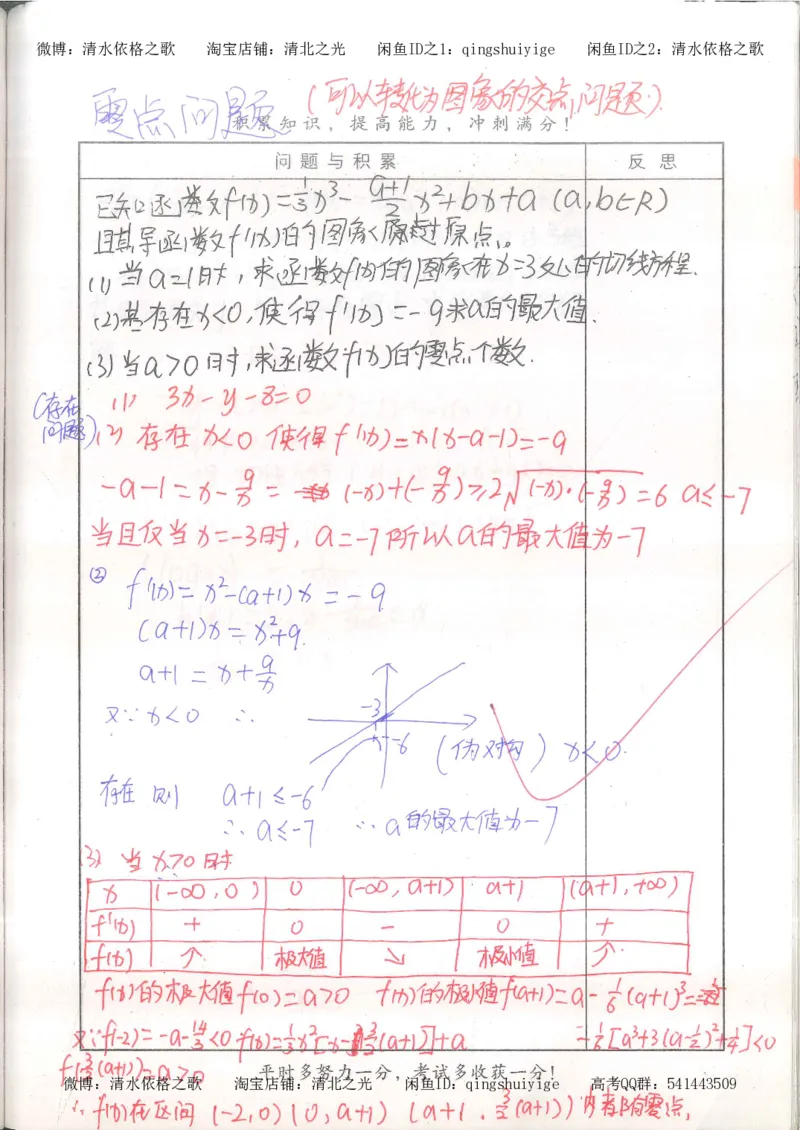 微博：清水依格之歌 淘宝店铺：清北之光 闲鱼ID之1：qingshuiyige 闲鱼ID之2：清水依格之歌
零点问题 (可以转化为图象的交点问题).
积累知识，提高能力，冲刺满分！
问题与积累 反思
已知函数f(x)=1/3x³-(a+1)/2x²+bx+a (a,b∈R)
且其导函数f'(x)的图象过原点。
(1)当a=1时，求函数f(x)的图象在x=3处的切线方程.
(2)若存在x<0,使得f'(x)=-9求a的最大值.
(3)当a>0时,求函数f(x)的零点个数.
(存在问题)
(1) 3x-y-8=0
(2) 存在x<0使得f'(x)=x(x-a-1)=-9
-a-1=-x-9/x=(-x)+(-9/x)≥2√(-x)·(-9/x)=6 a≤-7
当且仅当x=-3时，a=-7所以a的最大值为-7
② f'(x)=x²-(a+1)x=-9
(a+1)x=x²+9.
a+1=x+9/x
又∵x<0 ∴
-3
-6 (伪对勾) x<0.
存在则 a+1≤-6
∴a≤-7 ∴a的最大值为-7
(3) 当x>0时
x (-∞,0) 0 (-∞,a+1) a+1 (a+1,+∞)
f'(x) + 0 - 0 +
f(x) ↗ 极大值 ↘ 极小值 ↗.
f(x)的极大值f(0)=a>0 f(x)的极小值f(a+1)=a-1/6(a+1)³=
=-1/6[a³+3(a-1/2)²+1/4]<0
又∵f(-2)=-a-14/3<0 f(x)=1/3x²[x-3/2(a+1)]+a
f(3/2(a+1))=a>0
平时多努力一分，考试多收获一分！
微博：清水依格之歌 淘宝店铺：清北之光 闲鱼ID之1：qingshuiyige 高考QQ群：541443509
∴f(x)在区间(-2,0)(0,a+1)(a+1,3/2(a+1))内各有零点,